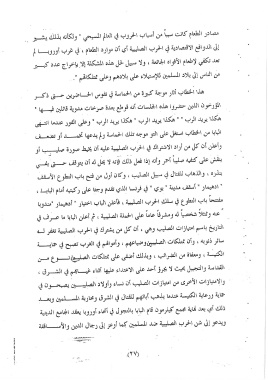 مصادر الطعام كانت سبباً من أسباب الحروب في العالم المسيحي " ولكنه بذلك يشير
الى الدوافع الاقتصادية في الحرب الصليبية أي أن موارد الطعام ، في غرب أوروبا لم
تعد تكفي لاطعام الأفواه الجائعة ، ولا سبيل لحل هذه المشكلة إلا بإخراج عدد كبير
من الناس إلى بلاد المسلمين للإستيلاء على بلادهم وعلى ممتلكاتهم "
هذا الخطاب أثار موجة كبيرة من الحماسة في نفوس الحاضرين حتى ذكر
المؤرخون الذين حضروا هذه الجلسات أنه قوطع بعدة صرخات مدوية قائلين فيها "
هكذا يريد الرب " " هكذا يريد الرب " وعلى الفور عندما انتهى
البابا من الخطاب استغل على التو موجة تلك الحماسة ولم يدعها تخمد أو تضعف
وأعلن أن كل من أراد الاشتراك في الحرب الصليبية عليه أن يخيط صورة صليب أو
ينقش على كتفه صليباً أحمر وأنه إذا فعل ذلك فإنه لا يحل له أن يتوقف حتى يفي
بنذره ، والذهاب للقتال في سبيل الصليب ، وكان أول من فتح باب التطوع الأسقف
" أدهيمار " أسقف مدينة " بوي " في فرنسا الذي تقدم وجثا على ركبتيه أمام البابا ،
مفتتحاً باب التطوع في سلك الحرب الصليبية ، فأعلن البابا اختيار " أدهيمار " مندوباً
عنه وممثلاً شخصياً له ومشرفاً عاماً على الحملة الصليبية ، ثم أعلن البابا ما عرف في
التاريخ باسم امتيازات الصليب وهي ، أن كل من يشترك في الحرب الصليبية تغفر له
سائر ذنوبه ، وأن ممتلكات الصليبيين وضياعهم ، وأموالهم في الغرب تصبح في حماية
الكنيسة ، ومعفاة من الضرائب ، وبذلك أضفى على ممتلكات الصليبيين نوع من
القداسة والتبجيل بحيث لا يجرؤ أحد على الاعتداء عليها أثناء غيابهم في الشرق ،
والامتيازات الأخرى من امتيازات الصليب أن نساء وأولاد الصليبيين يصبحون في
حماية ورعاية الكنيسة عندما يذهب آبائهم للقتال في الشرق ومحاربة المسلمين وبعد
ذلك أي بعد نهاية مجمع كليرمون قام البابا بالتجول في أنحاء أوروبا يعقد المجامع الدينية
ويدعو إلى شن الحرب الصليبية ضد المسلمين كما أوعز إلى رجال الدين والأساقفة
(٢٧)